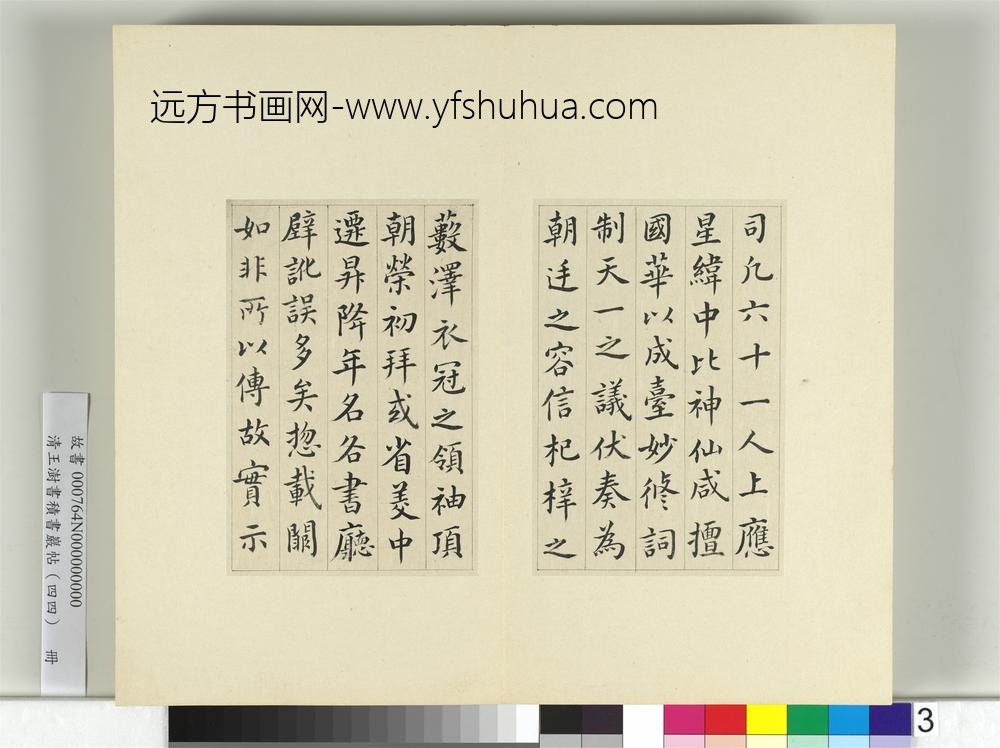 远方书画网-www.yfshuhua.com
司凡六十一人上應
星緯中比神仙咸擅
國華以成臺妙修詞
制天一之議伏奏為
朝廷之容信杞梓之
藪澤衣冠之領袖頃
朝榮初拜或省美中
遷昇降年名各書廳
壁訛誤多矣揔載闕
如非所以傳故實示
故書 000764N000000000
清王澍書積書巖帖（四四） 冊
3